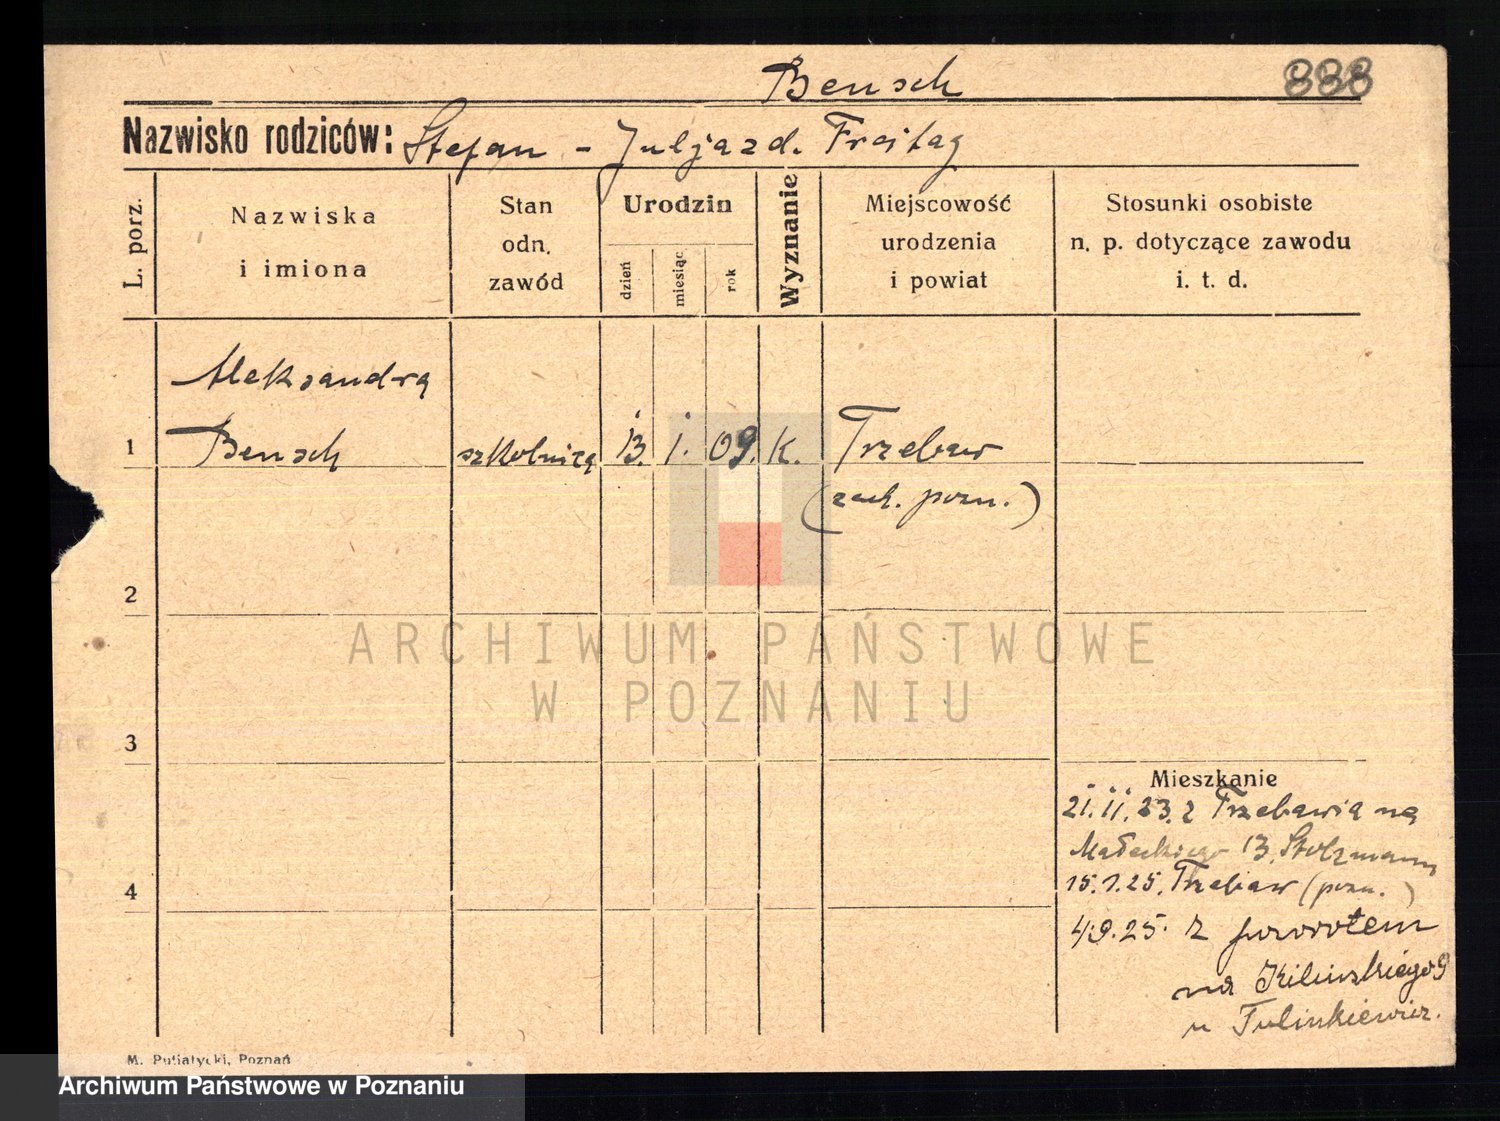 Bensch
888
Nazwisko rodziców: Stefan - Juljazd. Freitag
L. porz.
Nazwiska
i imiona
Stan
odn.
zawód
Urodzin
dzień
miesiąc
rok
Wyznanie
Miejscowość
urodzenia
i powiat
Stosunki osobiste
n. p. dotyczące zawodu
i. t. d.
Aleksandra
1 Bensch szkolnica 13. 1. 09. K. Trzebaw
(zach. pozn.)
2
3
4
Mieszkanie
21.II.23. z Trzebawia na
Małeckiego 13. Stolzmann
15.1.25. Trzebaw (pozn.)
4.9.25. z powrotem
na Kilinskiego 9
u Tulinkiewicz.
M. Putiatycki, Poznań
ARCHIWUM PAŃSTWOWE
W POZNANIU
Archiwum Państwowe w Poznaniu